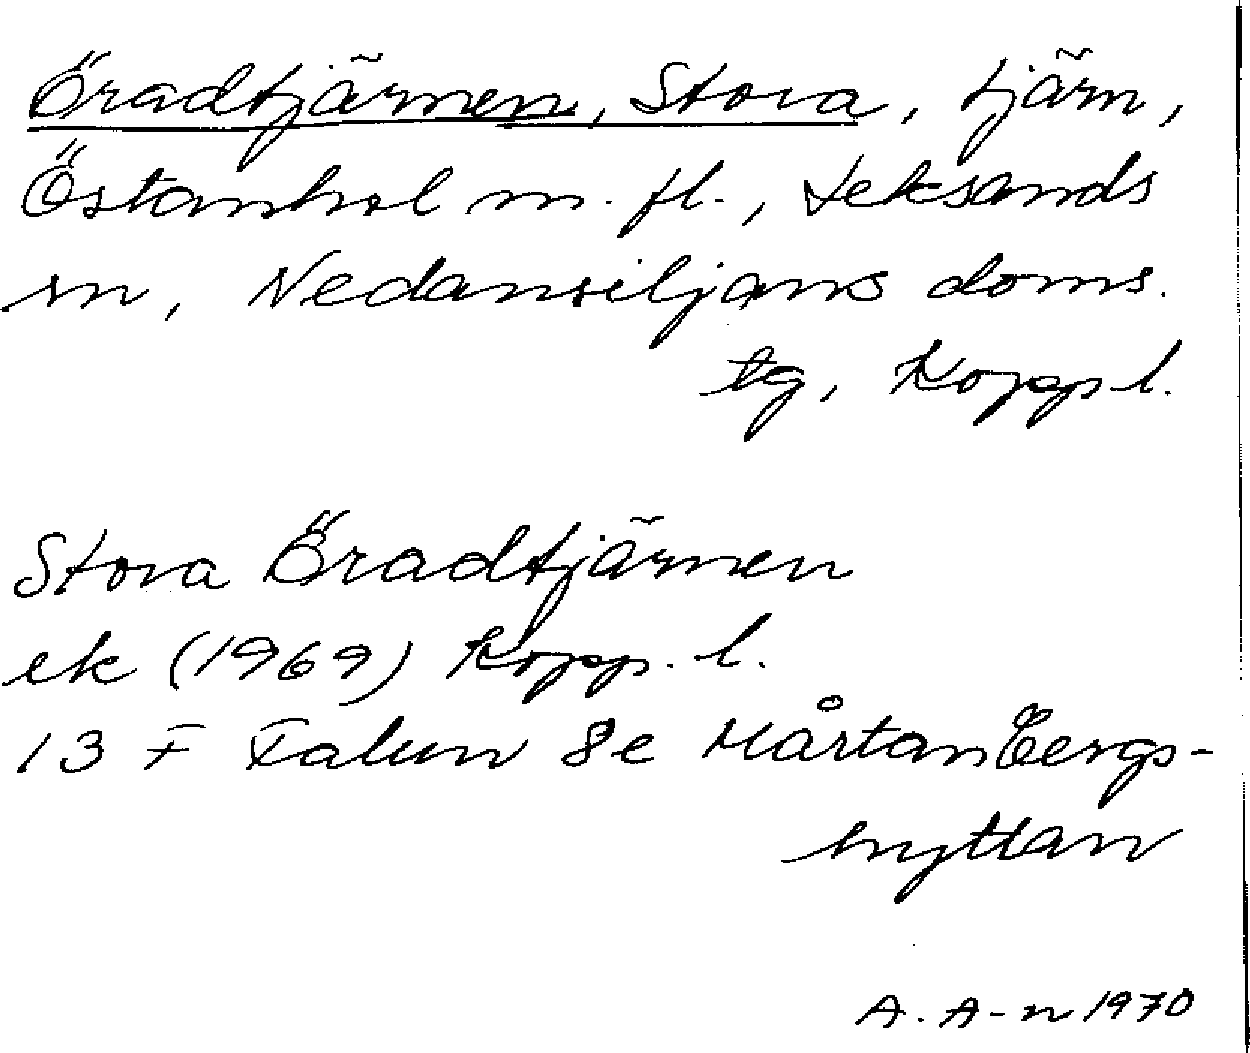 Öradtjärnen, Stora, tjärn,
Östanhol m. fl., Leksands
sn, Nedansiljans doms.
tg, Kopp l.
Stora Öradtjärnen
ek (1969) Kopp. l.
13 F Falun 8e Mårtanbergs-
hyttan
A. A-n 1970